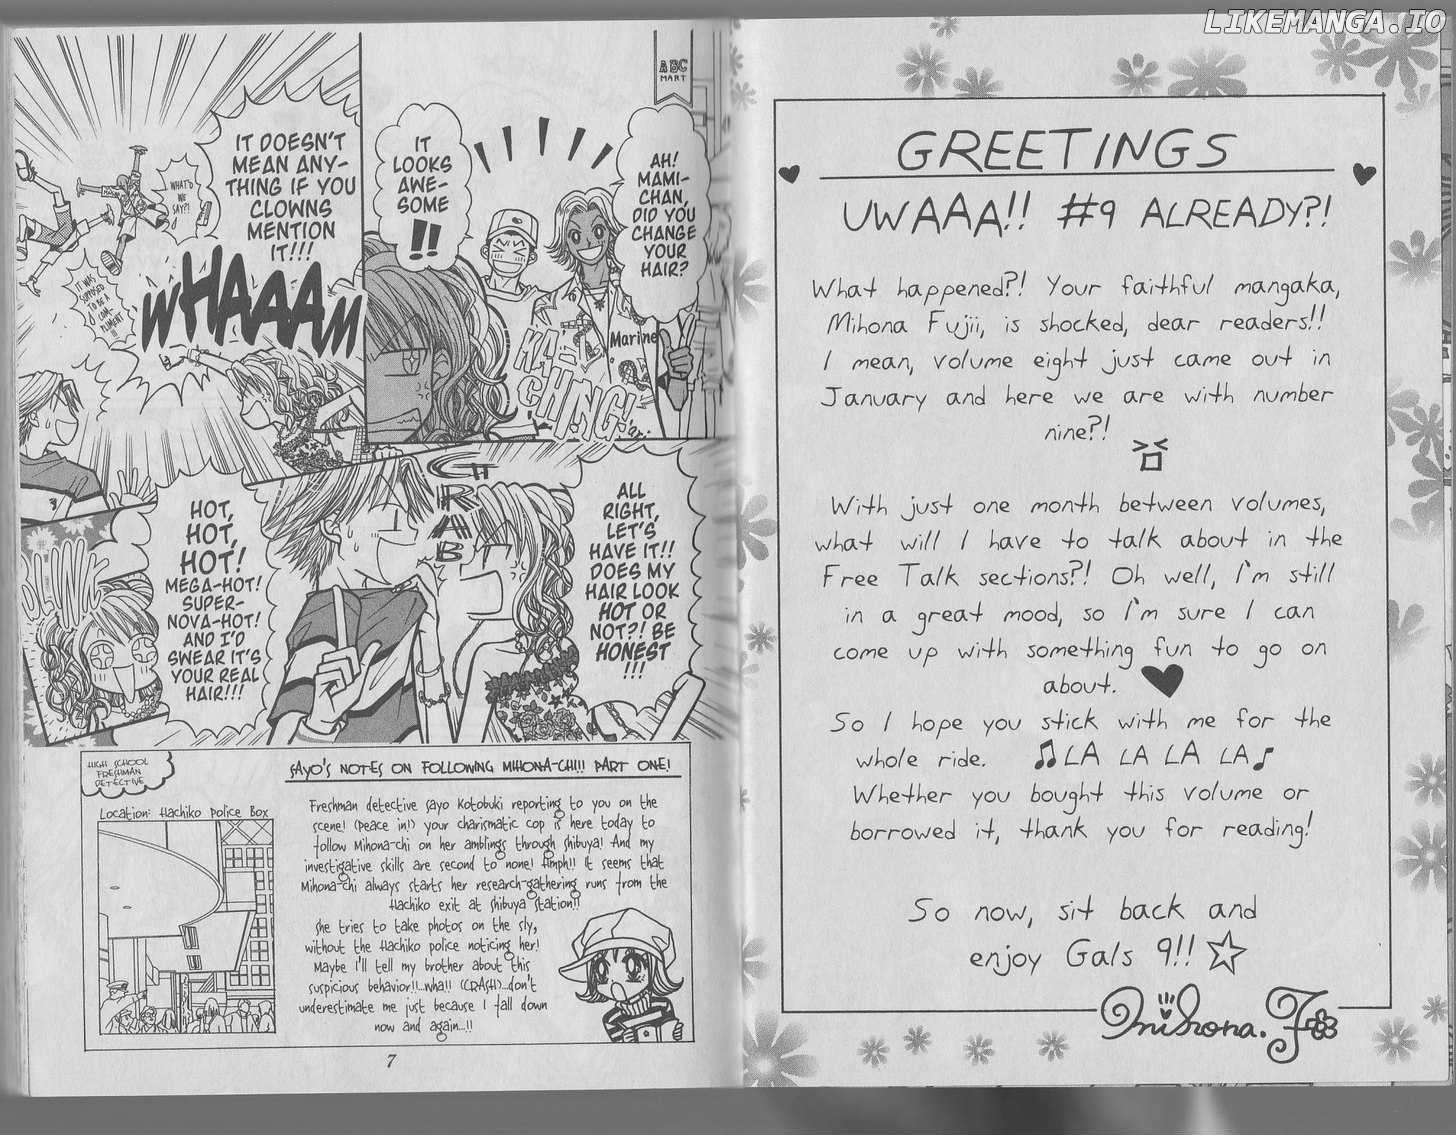 LIKEMANGA.IO
ABC
MART
AH!
MAMI-
CHAN,
DID YOU
CHANGE
YOUR
HAIR?
IT
LOOKS
AWE-
SOME
!!
Marine
KA
CHING!
IT DOESN'T
MEAN ANY-
THING IF YOU
CLOWNS
MENTION
IT!!!
WHAT'D
WE
SAY?!
IT WAS
SUPPOSED
TO BE A
COM-
PLIMENT
!!!
WHAAAM
ALL
RIGHT,
LET'S
HAVE IT!!
DOES MY
HAIR LOOK
HOT OR
NOT?! BE
HONEST
!!!
GRAB
HOT,
HOT,
HOT!
MEGA-HOT!
SUPER-
NOVA-HOT!
AND I'D
SWEAR IT'S
YOUR REAL
HAIR!!!
HIGH SCHOOL
FRESHMAN
DETECTIVE
SAYO'S NOTES ON FOLLOWING MIHONA-CHI!! PART ONE!
Location: Hachiko Police Box
Freshman detective Sayo Kotobuki reporting to you on the
scene! (Peace in!) Your charismatic cop is here today to
follow Mihona-chi on her amblings through Shibuya! And my
investigative skills are second to none! Hmph!! It seems that
Mihona-chi always starts her research-gathering runs from the
Hachiko exit at Shibuya Station!!
She tries to take photos on the sly,
without the Hachiko police noticing her!
Maybe I'll tell my brother about this
suspicious behavior!!...Wha!! (CRASH)...don't
underestimate me just because I fall down
now and again...!!
7
GREETINGS
UWAAA!! #9 ALREADY?!
What happened?! Your faithful mangaka,
Mihona Fujii, is shocked, dear readers!!
I mean, volume eight just came out in
January and here we are with number
nine?!
With just one month between volumes,
what will I have to talk about in the
Free Talk sections?! Oh well, I'm still
in a great mood, so I'm sure I can
come up with something fun to go on
about. ♥
So I hope you stick with me for the
whole ride. ♫LA LA LA LA♪
Whether you bought this volume or
borrowed it, thank you for reading!
So now, sit back and
enjoy Gals 9!! ☆
Mihona. F